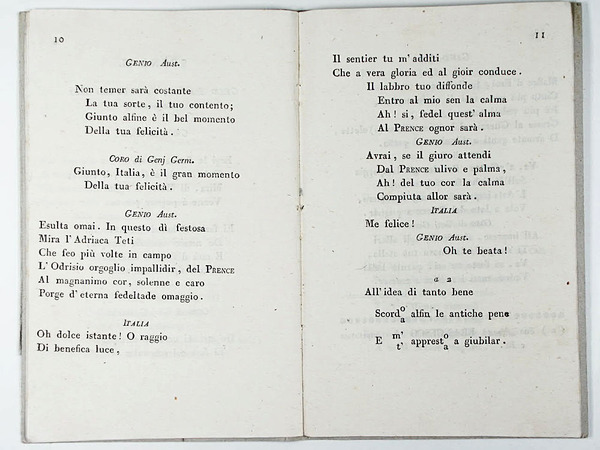 10
GENIO Aust.
Non temer sarà costante
La tua sorte, il tuo contento;
Giunto alfine è il bel momento
Della tua felicità.
CORO di Genj Germ.
Giunto, Italia, è il gran momento
Della tua felicità.
GENIO Aust.
Esulta omai. In questo dì festosa
Mira l'Adriaca Teti
Che feo più volte in campo
L'Odrisio orgoglio impallidir, del PRENCE
Al magnanimo cor, solenne e caro
Porge d'eterna fedeltade omaggio.
ITALIA
Oh dolce istante! O raggio
Di benefica luce,
11
Il sentier tu m'additi
Che a vera gloria ed al gioir conduce.
Il labbro tuo diffonde
Entro al mio sen la calma
Ah! si, fedel quest' alma
Al PRENCE ognor sarà.
GENIO Aust.
Avrai, se il giuro attendi
Dal PRENCE ulivo e palma,
Ah! del tuo cor la calma
Compiuta allor sarà.
ITALIA
Me felice!
GENIO Aust.
Oh te beata!
a 2
All'idea di tanto bene
Scord o/a alfin le antiche pene
E m'/t' apprest o/a a giubilar.